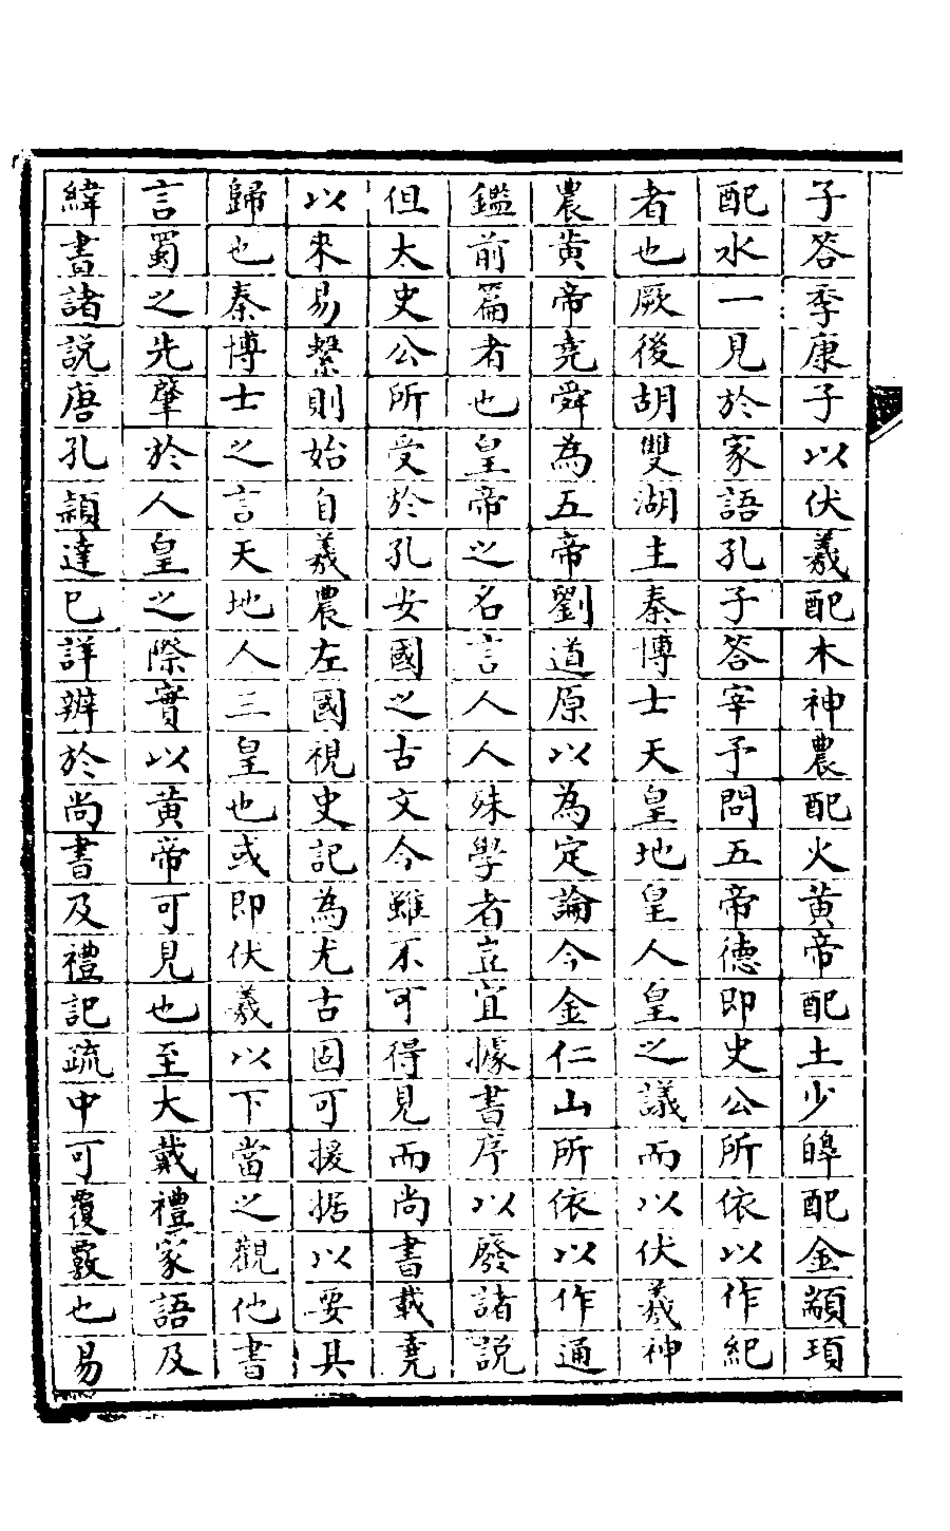 子答季康子以伏羲配木神農配火黄帝配土少皥配金顓頊
配水一見於家語孔子答宰予問五帝德即史公所依以作紀
者也厥後胡雙湖主秦博士天皇地皇人皇之議而以伏羲神
農黄帝堯舜為五帝劉道原以為定論今金仁山所依以作通
鑑前篇者也皇帝之名言人人殊學者豈宜據書序以廢諸說
但太史公所受於孔安國之古文今雖不可得見而尚書載堯
以來易繫則始自羲農左國視史記為尤古固可援据以要其
歸也秦博士之言天地人三皇也或即伏羲以下當之觀他書
言蜀之先肇於人皇之際實以黄帝可見也至大戴禮家語及
緯書諸説唐孔頴達巳詳辨於尚書及禮記疏中可覆覈也易